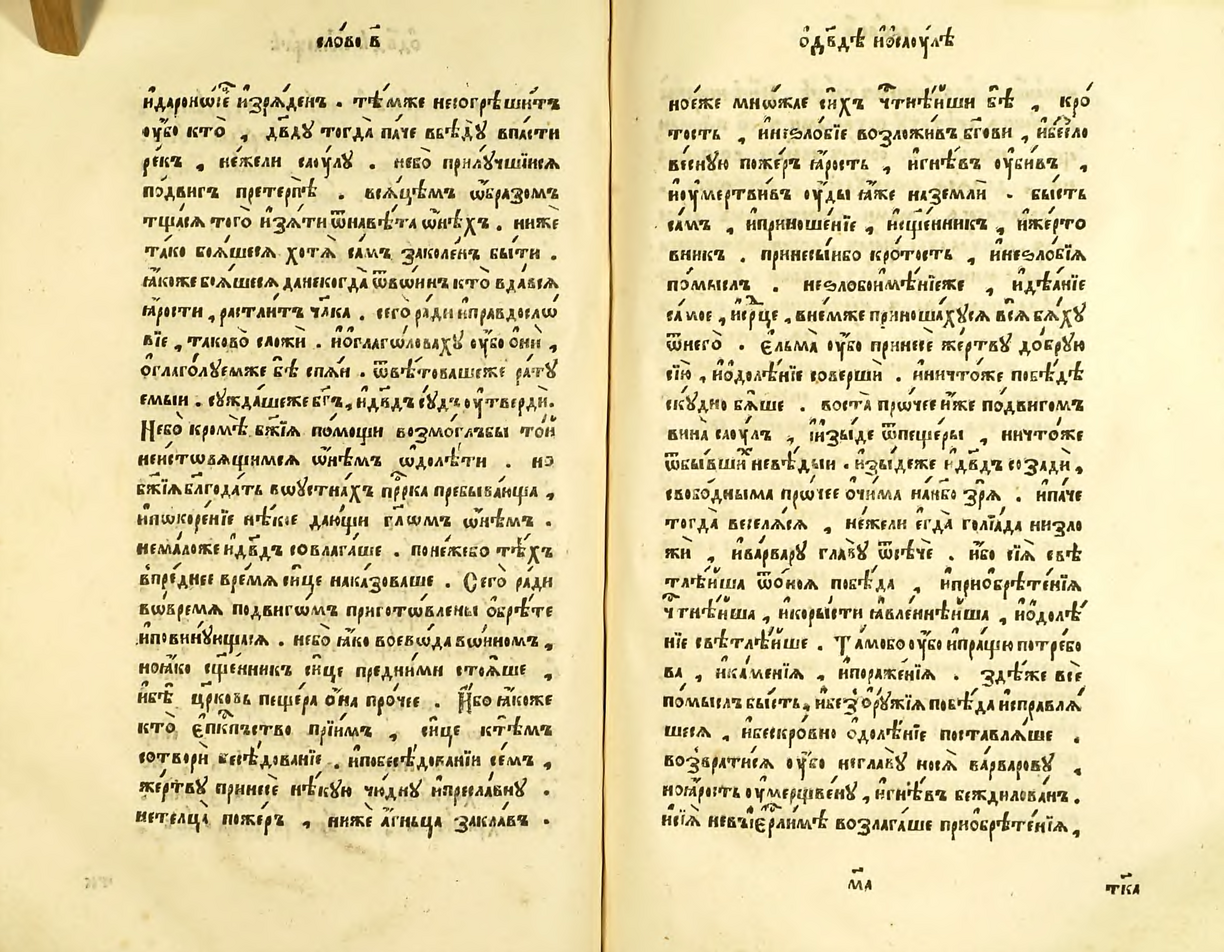 сло́во в҃
и҆дароно́ѡїе и҆зрѧ́денъ . тѣ́мже несогрѣши́тъ
ᲂу҆́бо кто̀ , дв҃дꙋ тогда̀ па́че вбѣдꙋ̀ впа́сти
ре́къ , не́жели слоѵ́лꙋ . небо̀ прилꙋчшїи́сѧ
по́двигъ претерпѣ̀ . всѧ́цѣмъ ѡ҆́бразомъ
тща́сѧ того̀ и҆зѧ́ти ѿнавѣ́та ѡ҆нѣ́хъ . ниже
та́ко боѧ́шесѧ хотѧ̀ са́мъ заколе́нъ бы́ти .
ꙗ҆́коже боѧ́шесѧ данекогда̀ ѿво́инъ кто̀ вда́всѧ
ꙗ҆́рости , растли́тъ чл҃ка . сего̀ ра́ди и҆правдосло́
вїе , таково̀ сложѝ . и҆ѻ҆глаго́ловахꙋ ᲂу҆́бо ѻ҆нѝ ,
ѻ҆глаго́лꙋемже бѣ̀ спѧ́и . ѿвѣтова́шеже ра́тꙋ
емыи . сꙋжда́шеже бг҃ъ , и҆дв҃дъ сꙋ́дъ ᲂу҆тверди .
Небо кромѣ̀ бж҃їѧ по́мощи возмо́глъбы то́и
неи́стовѧщимсѧ ѡ҆нѣ́мъ ѡ҆долѣ́ти . но
бж҃їѧ благода́ть воустна́хъ прⷪ҇ка пребыва́ющи ,
и҆покоре́нїе нѣ́кое даю́щи гл҃омъ ѡ҆нѣ́мъ .
нема́ложе и҆дв҃дъ совлага́ше . поне́жебо тѣ́хъ
впре́днее вре́мѧ си́це наказова́ше . Сего̀ ра́ди
вовре́мѧ по́двигомъ приготовлены̀ ѻ҆брѣ́те
и҆повинꙋ́ющасѧ . небо̀ ꙗ҆́ко воево́да во́иномъ ,
ноꙗ҆́ко сщ҃е́нникъ си́це пре́дними стоѧ́ше ,
и҆бѣ̀ цр҃ковь пеще́ра ѻ҆на̀ про́чее . И҆́бо ꙗ҆́коже
кто̀ є҆пⷭ҇кпъство прїи́мъ , си́це ктѣ́мъ
сотворѝ бесѣ́дованїе . и҆побесѣ́дованїи се́мъ ,
же́ртвꙋ принесѐ нѣ́кꙋю чю́днꙋ и҆пресла́внꙋ .
нетелца̀ поже́ръ , ниже а҆́гньца закла́въ .
ѻ҆дв҃дѣ и҆ѻ҆слоѵ́лѣ
ноеже мно́жае си́хъ чⷭ҇тнѣ́йши бѣ̀ , кро́
тость , и҆неѕло́бїе возложи́въ бг҃ови , и҆бе́сло
ве́сную поже́ръ ꙗ҆́рость , и҆гнѣ́въ ᲂу҆би́въ ,
и҆ᲂу҆мертви́въ ᲂу҆́ды ꙗ҆́же наземлѝ . бы́сть
са́мъ , и҆приноше́нїе , и҆сщ҃е́нникъ , и҆же́рто
вникъ . принесы́ибо кро́тость , и҆неѕло́бїѧ
по́мыслъ . неѕлобоимѣ́нїеже , и҆дѣѧ́нїе
са́мое , и҆ср҃це , вне́мже приноша́хꙋсѧ всѧ̀ бѧ́хꙋ
ѿнего̀ . є҆льма̀ ᲂу҆́бо принесѐ же́ртвꙋ до́брꙋю
сїю̀ , и҆ѻ҆долѣ́нїе совершѝ . и҆ничто́же побѣ́дѣ
ску́дно бѧ́ше . воста̀ про́чее и҆́же по́двигомъ
вина̀ слоѵ́лъ , и҆и҆зы́де ѿпеще́ры , ничто́же
ѿбы́вшихъ невѣ́дыи . и҆зы́деже и҆дв҃дъ созадѝ ,
свобо́дныма про́чее ѻ҆чи́ма нане́бо зрѧ̀ . и҆па́че
тогда̀ веселѧ́сѧ , не́жели є҆гда̀ голїа́да низло
жѝ , и҆варвару̀ главꙋ̀ ѿсѣ́че . и҆́бо сїѧ̀ свѣ
тлѣ́йша ѿѻ҆ноѧ̀ побѣ́да , и҆приѻбрѣте́нїѧ
чⷭ҇тнѣ́йша , и҆коры́сти ꙗ҆вленнѣ́йша , и҆ѻ҆долѣ́
нїе свѣтлѣ́йше . Та́мобо ᲂу҆́бо и҆пращю̀ потре́бо
ва , и҆ка́менїѧ , и҆пораже́нїѧ . здѣ́же всѐ
по́мыслъ бы́сть , и҆без̾ѻрꙋ́жїѧ побѣ́да и҆справлѧ́
шесѧ , и҆беcкро́вно ѻ҆долѣ́нїе поставлѧ́ше .
возврати́сѧ ᲂу҆́бо неглавꙋ̀ носѧ̀ ва́рваровꙋ ,
ноꙗ҆́рость ᲂу҆мерщве́нꙋ , и҆гнѣ́въ безжи́лованъ .
и҆сїѧ̀ невъіе҆рⷭ҇ли́мѣ возлага́ше приѻбрѣте́нїѧ ,
м҃а
тк҃а